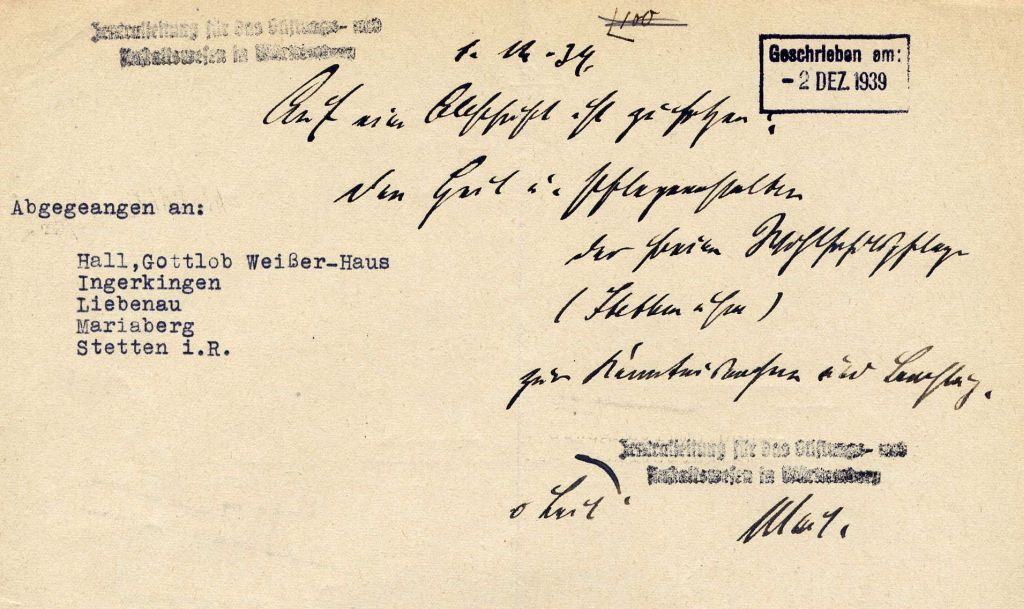 Zentralleitung für das Stiftungs- und
Anstaltswesen in Württemberg
1100
1. 12. 39.
Geschrieben am:
- 2 DEZ. 1939
Auf eine Abschrift ist zu setzen:
den Heil u. Pflegeanstalten
der freien Wohlfahrtspflege
(Stetten usw)
zur Kenntnisnahme und Beachtg.
Abgegeangen an:
Hall,Gottlob Weißer-Haus
Ingerkingen
Liebenau
Mariaberg
Stetten i.R.
Zentralleitung für das Stiftungs- und
Anstaltswesen in Württemberg